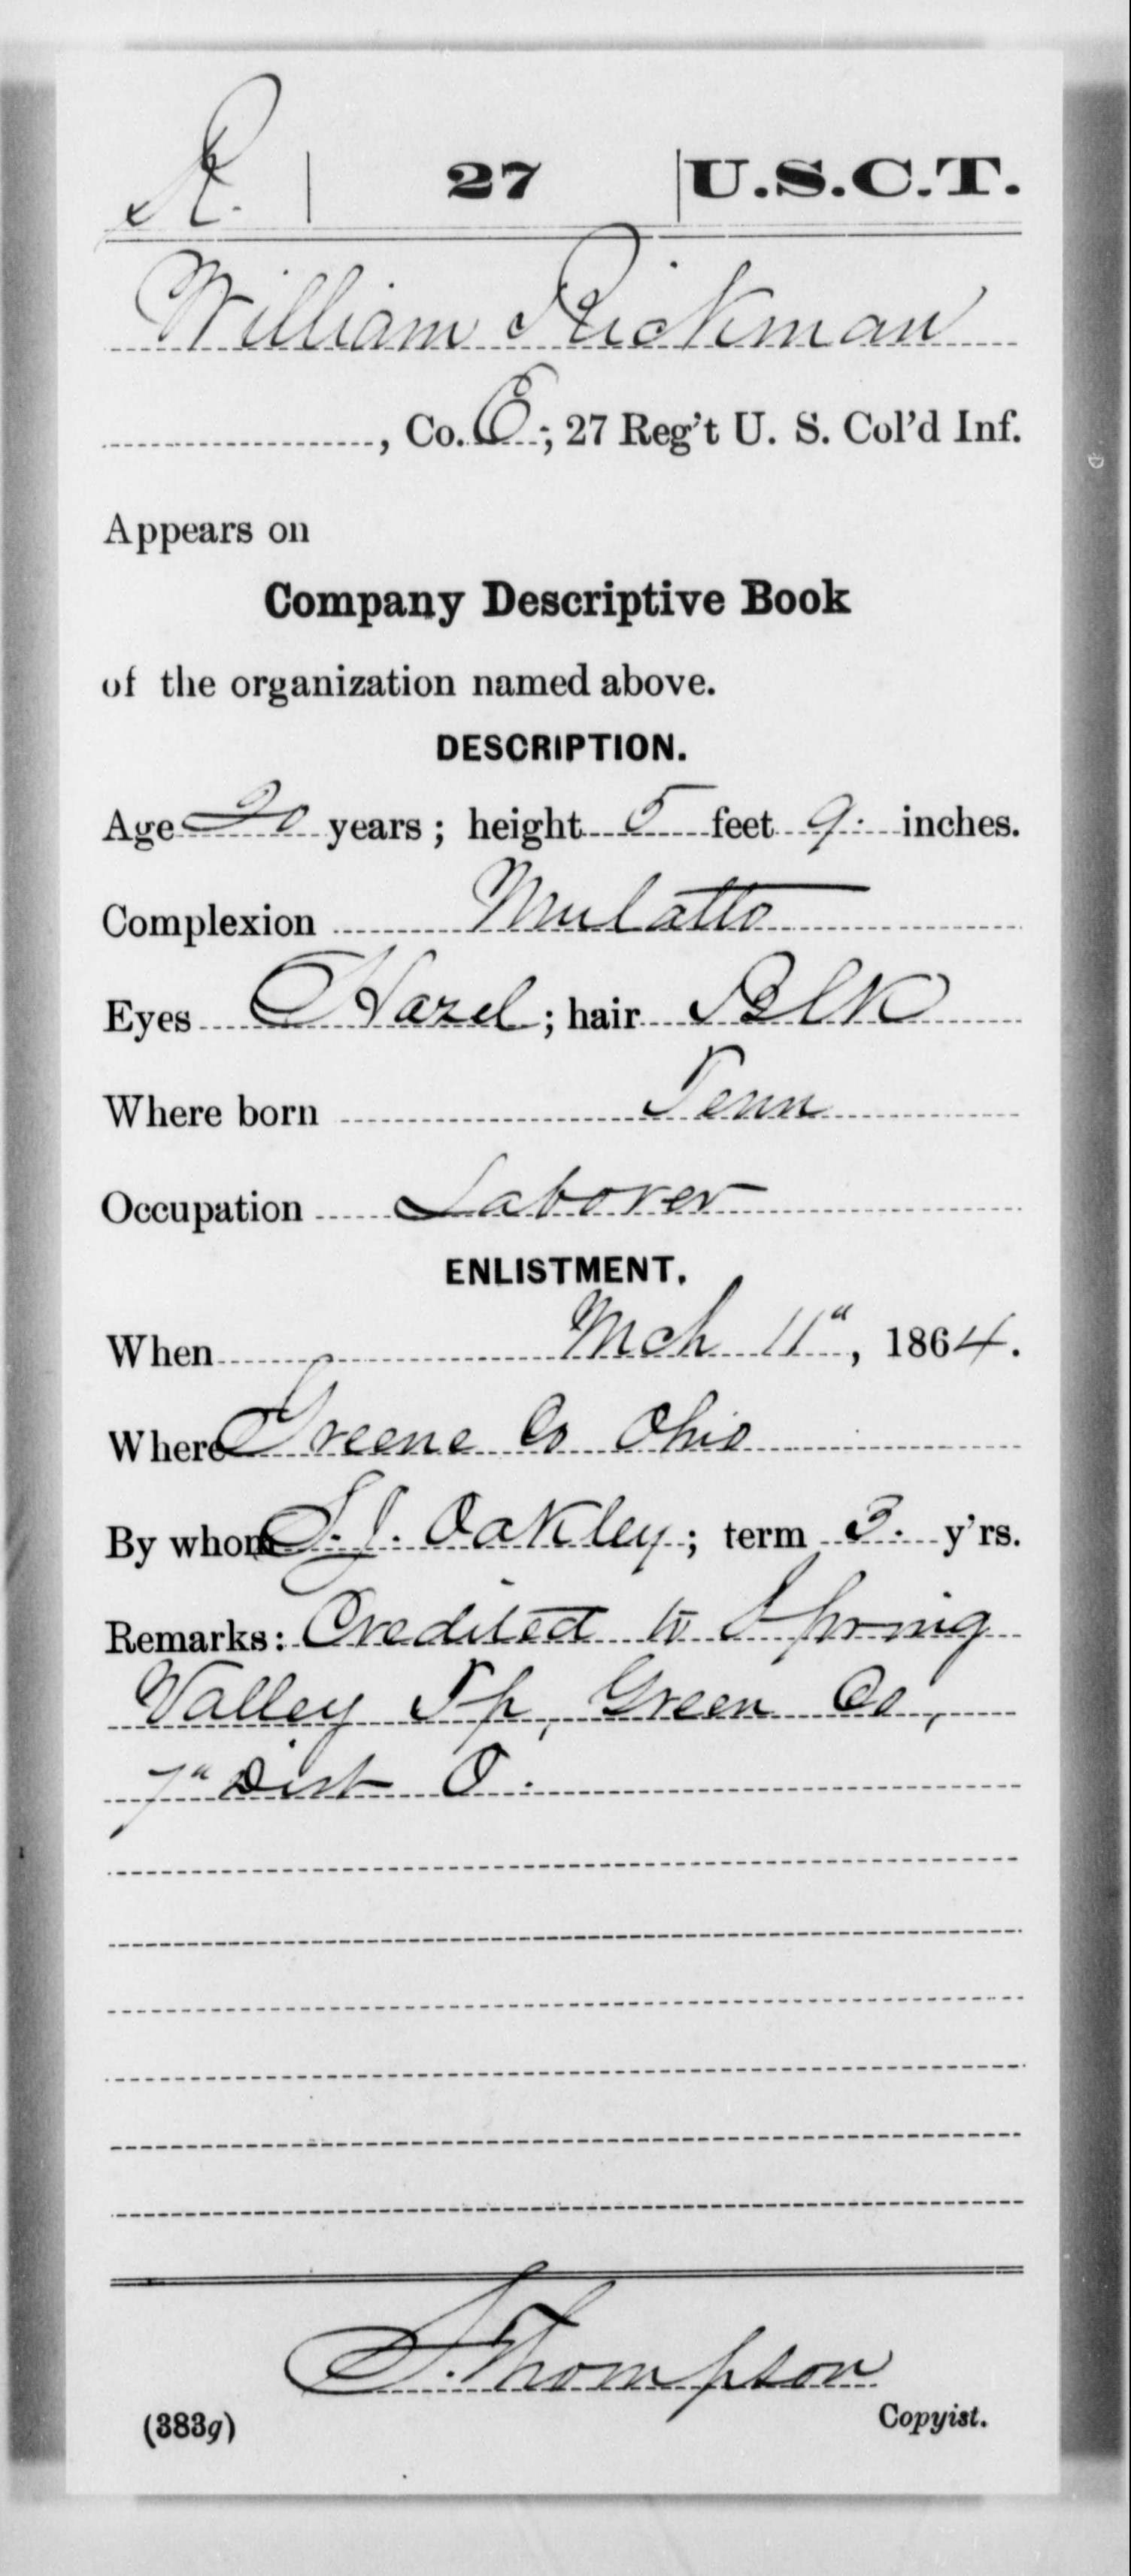 R. | 27 | U.S.C.T.
William Rickman
, Co. E; 27 Reg't U. S. Col'd Inf.
Appears on
Company Descriptive Book
of the organization named above.
DESCRIPTION.
Age 20 years; height 5 feet 9. inches.
Complexion Mulatto
Eyes Hazel; hair Blk
Where born Tenn
Occupation Laborer
ENLISTMENT.
When Mch 11", 1864.
Where Greene Co Ohio
By whom S. J. Oakley; term 3. y'rs.
Remarks: Credited to Spring
Valley Tp, Green Co,
7" Dist O.
S. Thompson
(383g) Copyist.